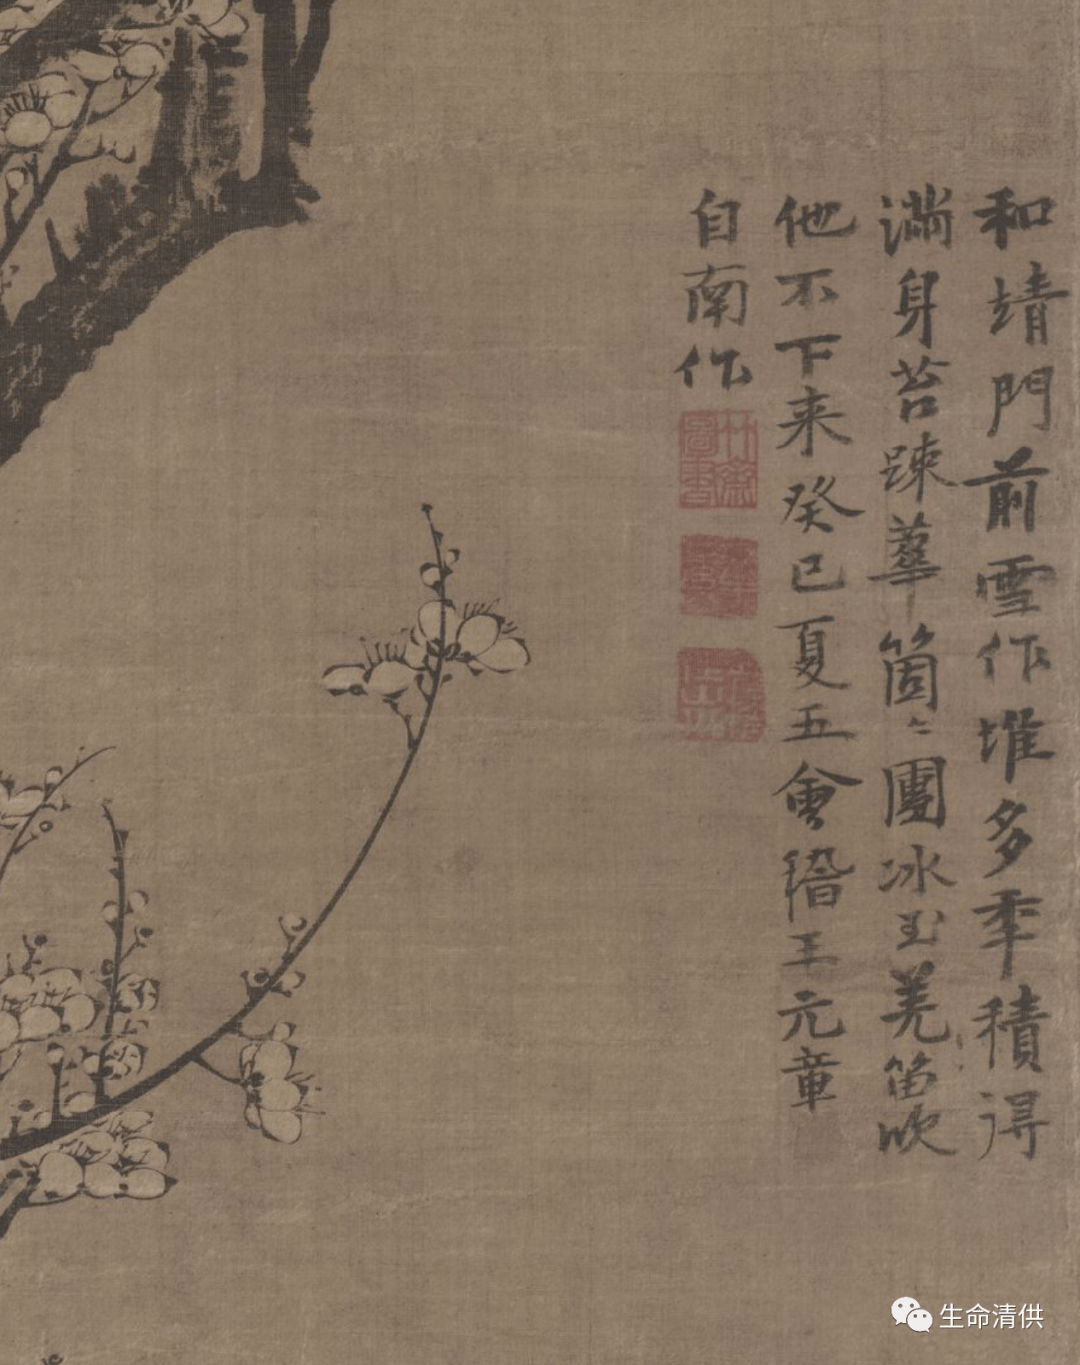 和靖門前雪作堆多年積得
滿身苔踈華箇〻團冰玉羌笛吹
他不下来癸巳夏五會稽王元章
自南作
竹齋圖書
生命清供